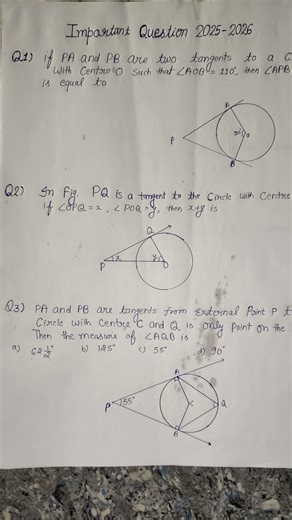 Important Question 2025-2026
Q1) if PA and PB are two tangents to a C
With Centre O Such that ∠AOB = 110°, then ∠APB
is equal to
A
P
110°
O
B
Q2) In Fig. PQ is a tangent to the Circle with Centre
If ∠OPQ = x, ∠POQ = y, then x+y is
Q
P
x
y
O
Q3) PA and PB are tangents from External Point P t
Circle with Centre C and Q is only Point on the
Then the measure of ∠AQB is
a) 62 1/2° b) 125° c) 55° d) 90°
A
P
55°
C
Q
B